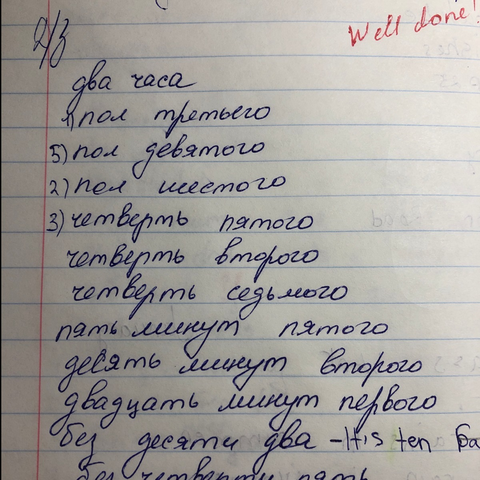 Well done!
д/з
два часа
1) пол третьего
5) пол девятого
2) пол шестого
3) четверть пятого
четверть второго
четверть седьмого
пять минут пятого
десять минут второго
двадцать минут первого
без десяти два - It is ten
без четверти пять